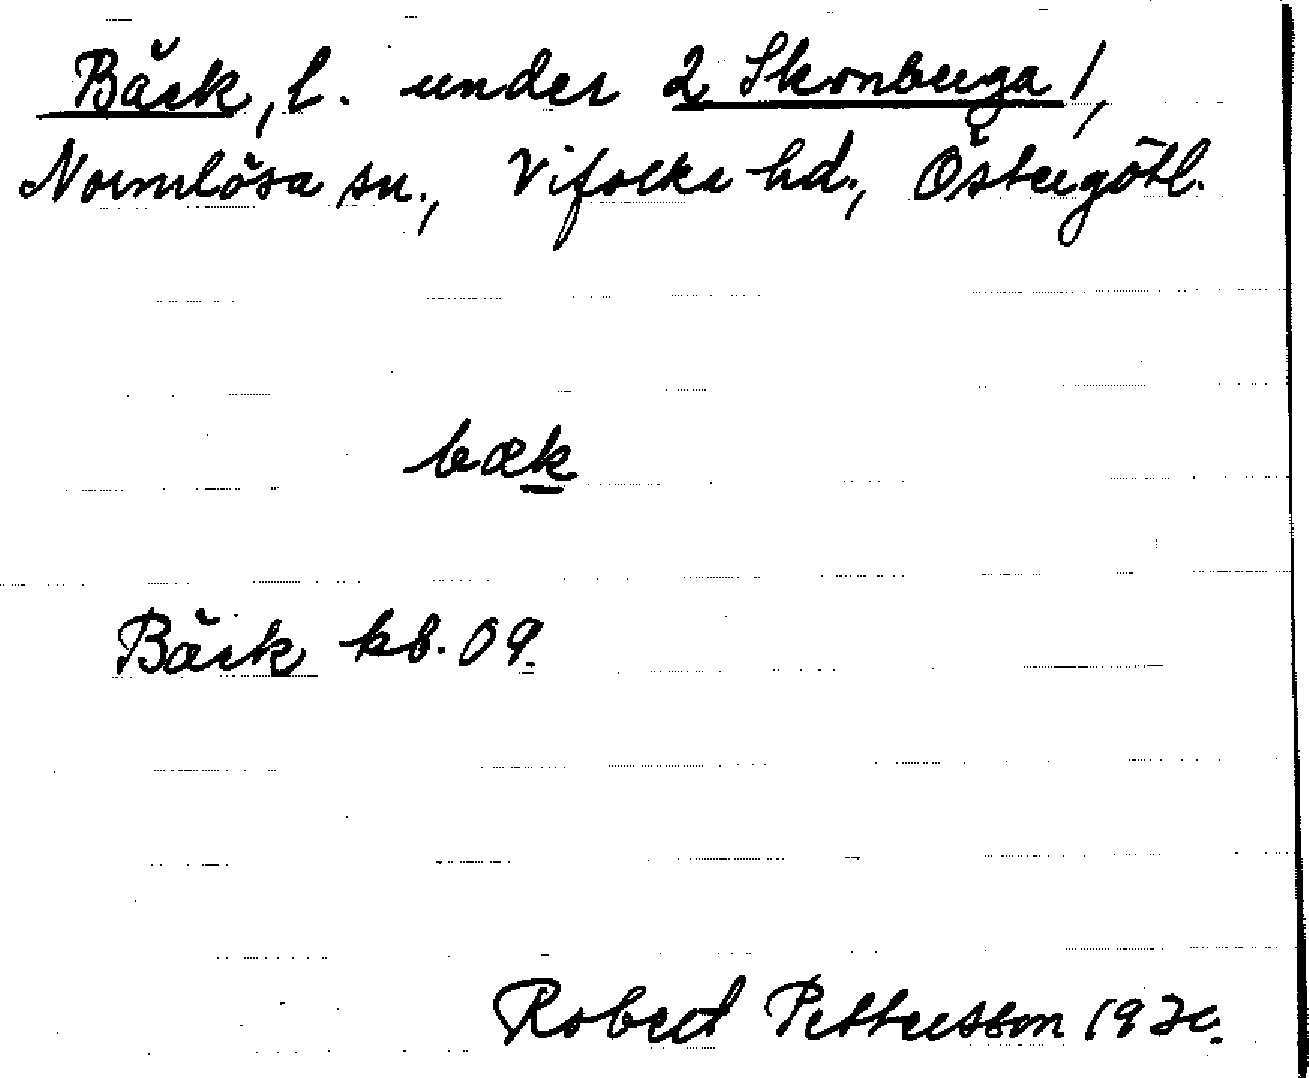 Bäck, l. under 2 Skonberga /,
Normlösa sn., Vifolka hd., Östergötl.
bæk
Bäck kb. 09.
Robert Pettersson 192